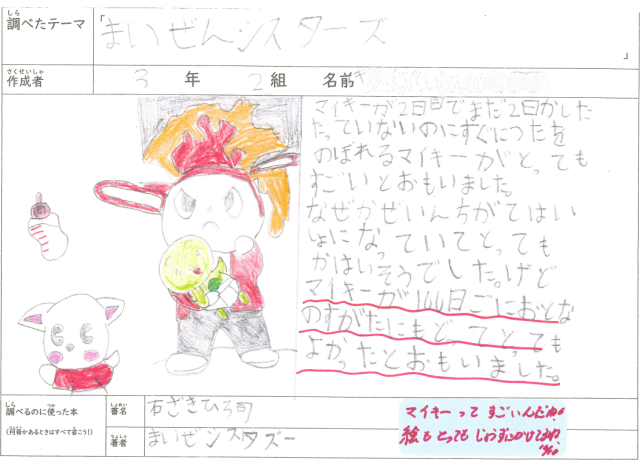 しら
調べたテーマ 「まいぜんシスターズ 」
さくせいしゃ
作成者 3 年 2 組 名前
マイキーが2日目でまだ2日かしした
たっていないのにすぐにつたを
のぼれるマイキーがとっても
すごいとおもいました。
なぜかせいんちがてはい
しょになっていてとっても
かはいそうでした。けど
マイキーが100日ごにおとな
のすがたにもどってとっても
よかったとおもいました。
しら つか ほん
調べるのに使った本
(何冊かあるときはすべて書こう!)
しょめい
書名 石ざきひろ司
ちょしゃ
著者 まいぜンスタズー
マイキーって すごいんだね。
絵もとってもじょうずにかけてますね